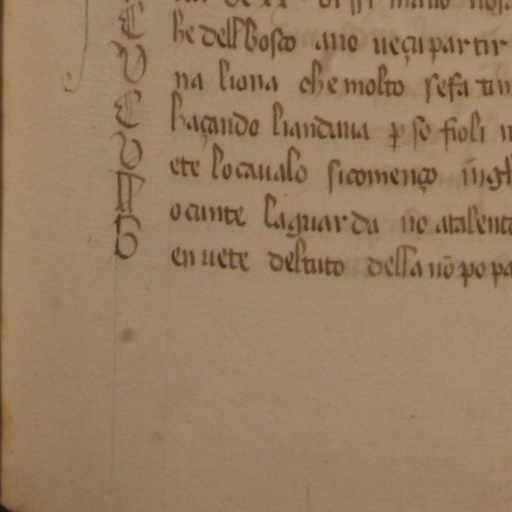 C he dell bosco ano ueçu partir
V na liona che molto se fa tin
C haçando liandaua p so fioli n
V ete lo caualo si començo ingh
M o cunte la guarda no atalent
B en uete del tuto della nō po pa